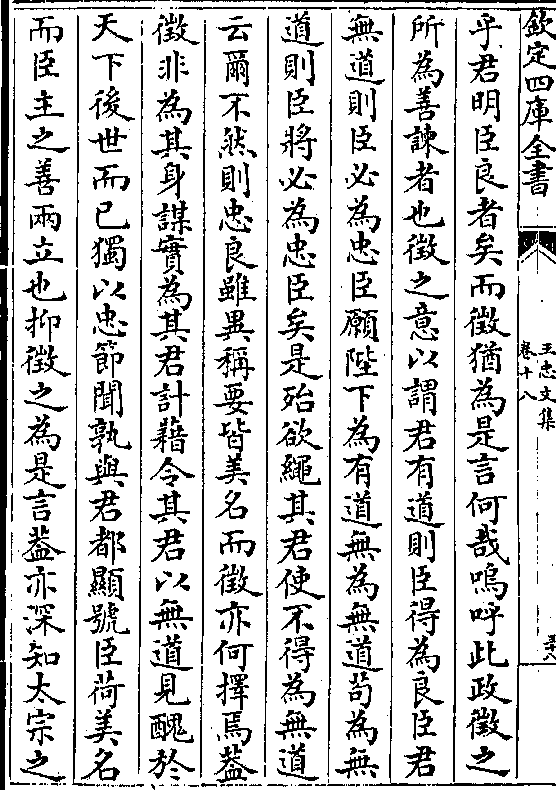 欽定四庫全書
王忠文集
卷十八
乎君明臣良者矣而徵猶為是言何哉嗚呼此政徵之
所為善諫者也徵之意以謂君有道則臣得為良臣君
無道則臣必為忠臣願陛下為有道無為無道茍為無
道則臣將必為忠臣矣是殆欲繩其君使不得為無道
云爾不然則忠良雖異稱要皆美名而徵亦何擇焉葢
徵非為其身謀實為其君計藉令其君以無道見醜於
天下後世而已獨以忠節聞孰與君都顯號臣荷美名
而臣主之善兩立也抑徵之為是言葢亦深知太宗之